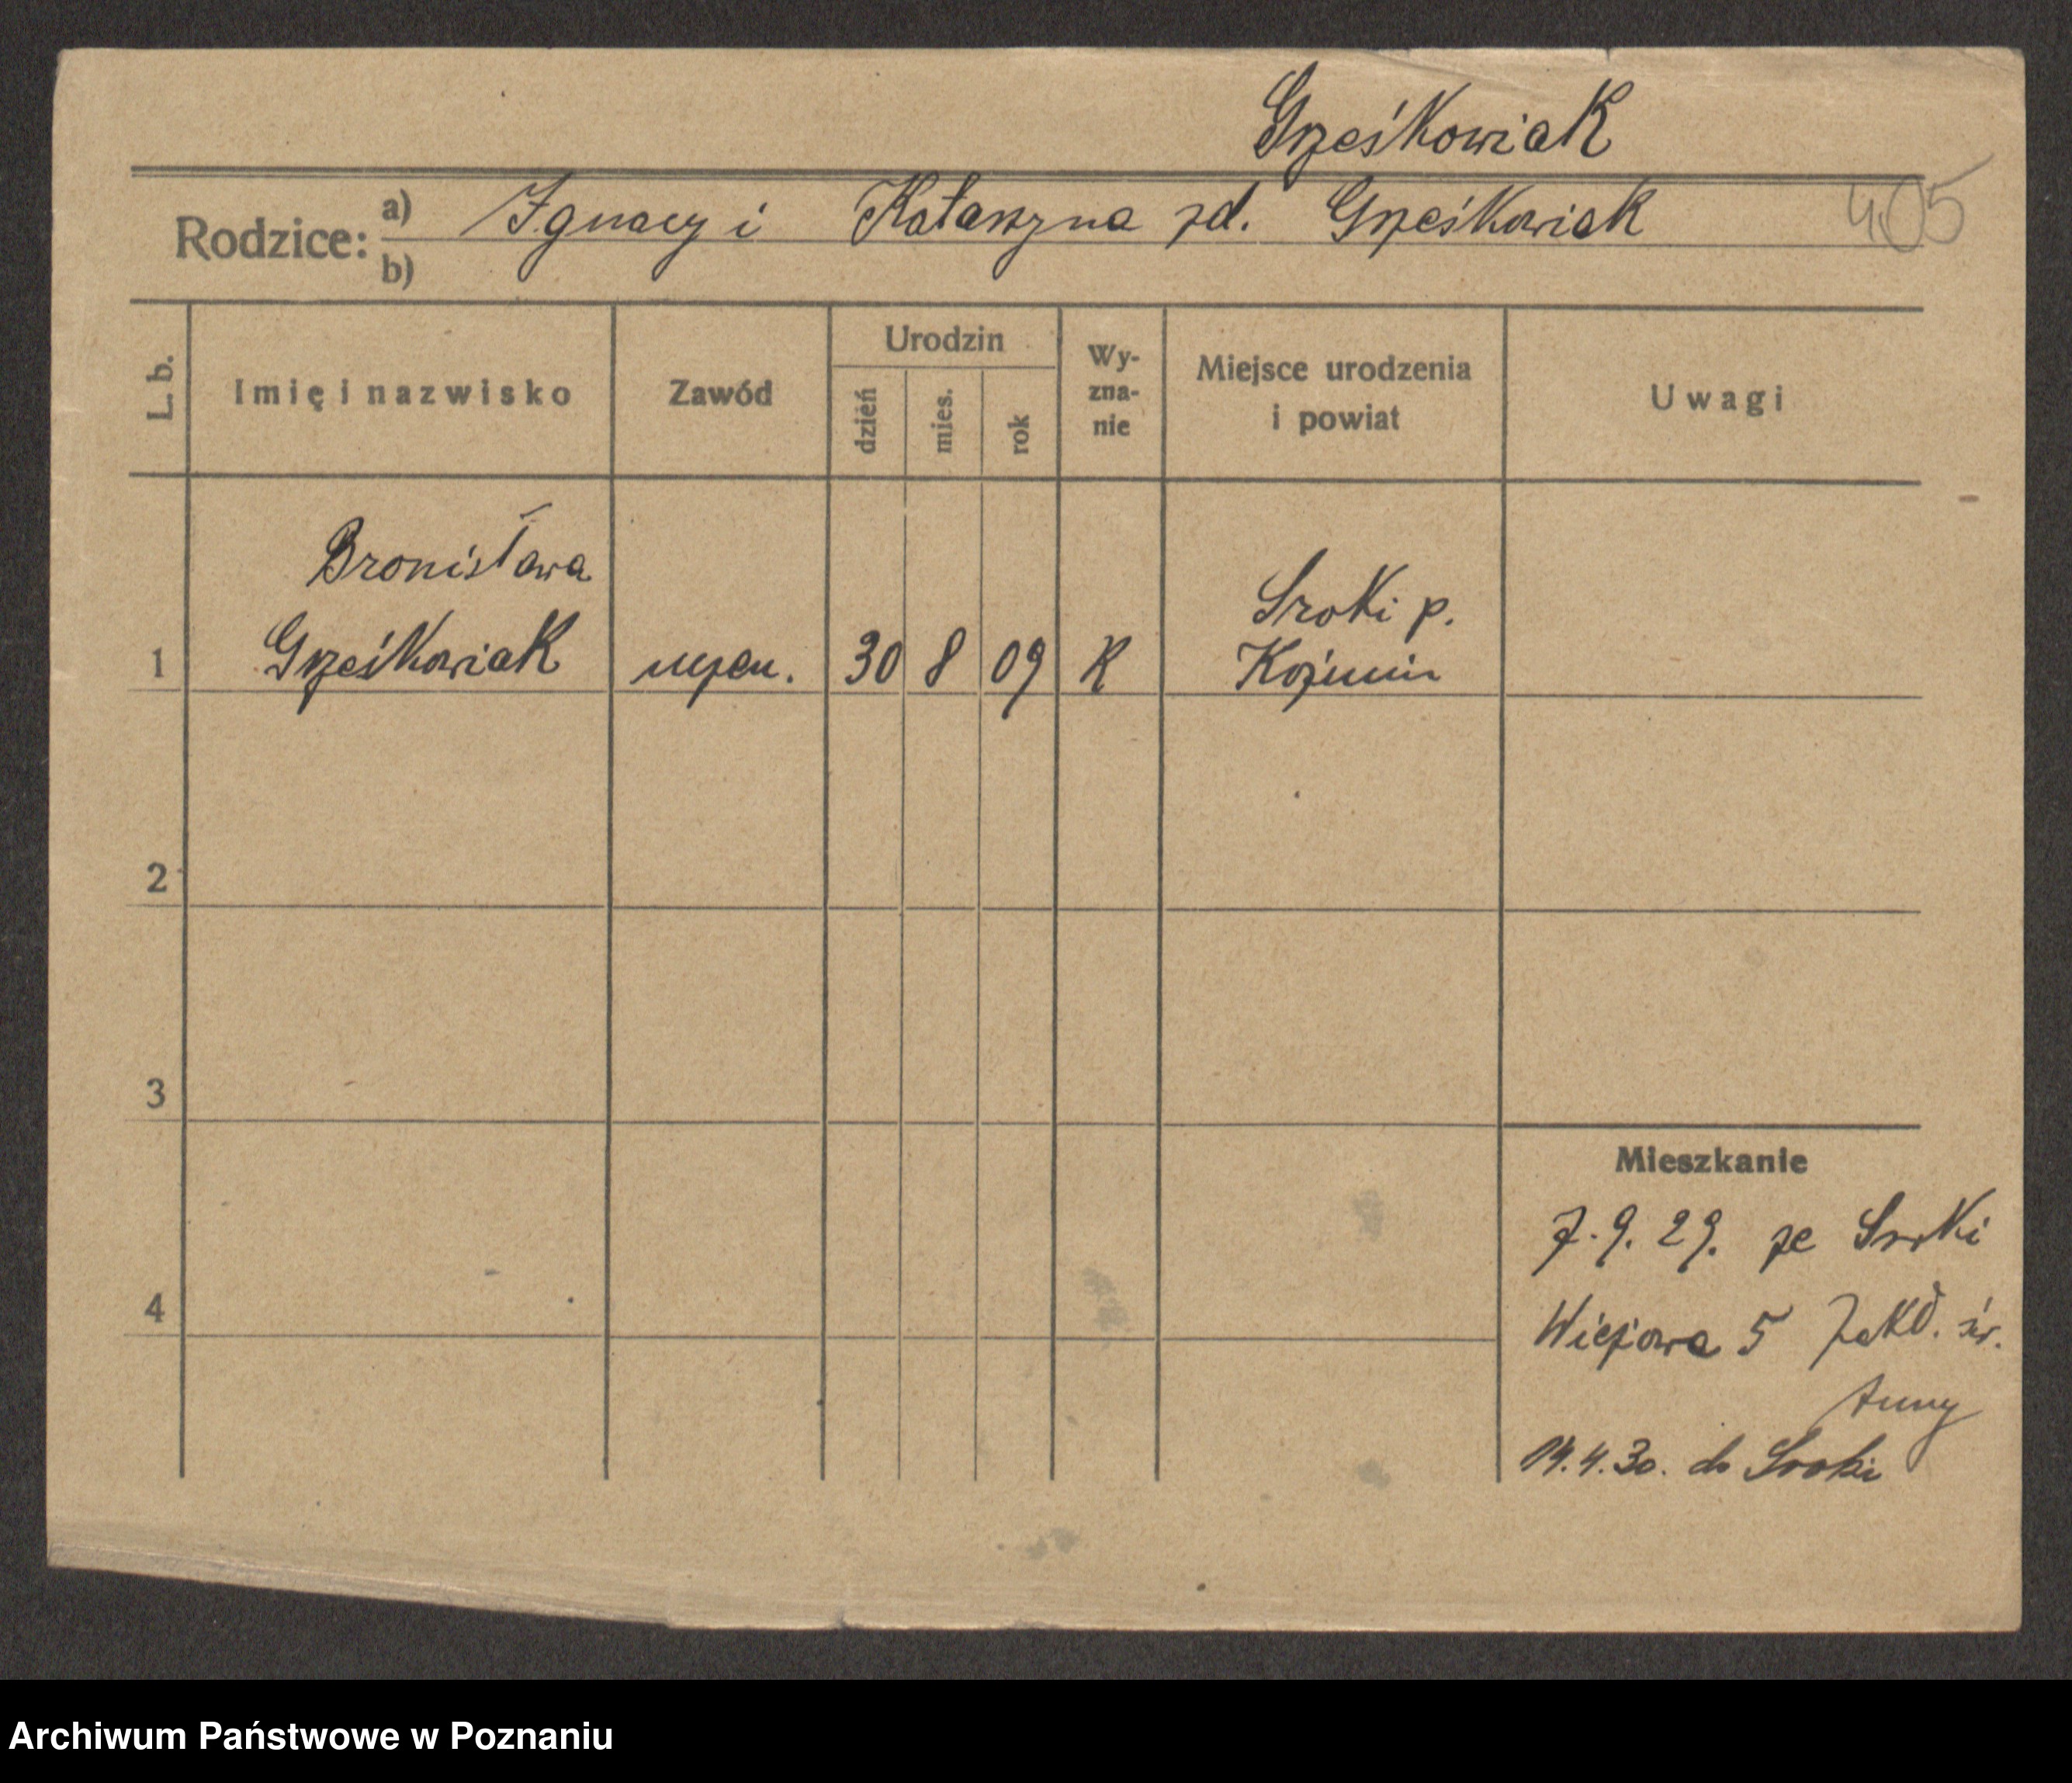 Grześkowiak
405
Rodzice: a) Ignacy i Katarzyna zd. Grześkowiak
b)
L. b.
Imię i nazwisko
Zawód
Urodzin
dzień
mies.
rok
Wy-
zna-
nie
Miejsce urodzenia
i powiat
Uwagi
Bronisława
Sroki p.
1 Grześkowiak uczen. 30 8 09 K Koźmin
2
3
Mieszkanie
7.9.29. ze Sroki
4
5 Zakł. św.
Anny
14.4.30. do Sroki
Archiwum Państwowe w Poznaniu